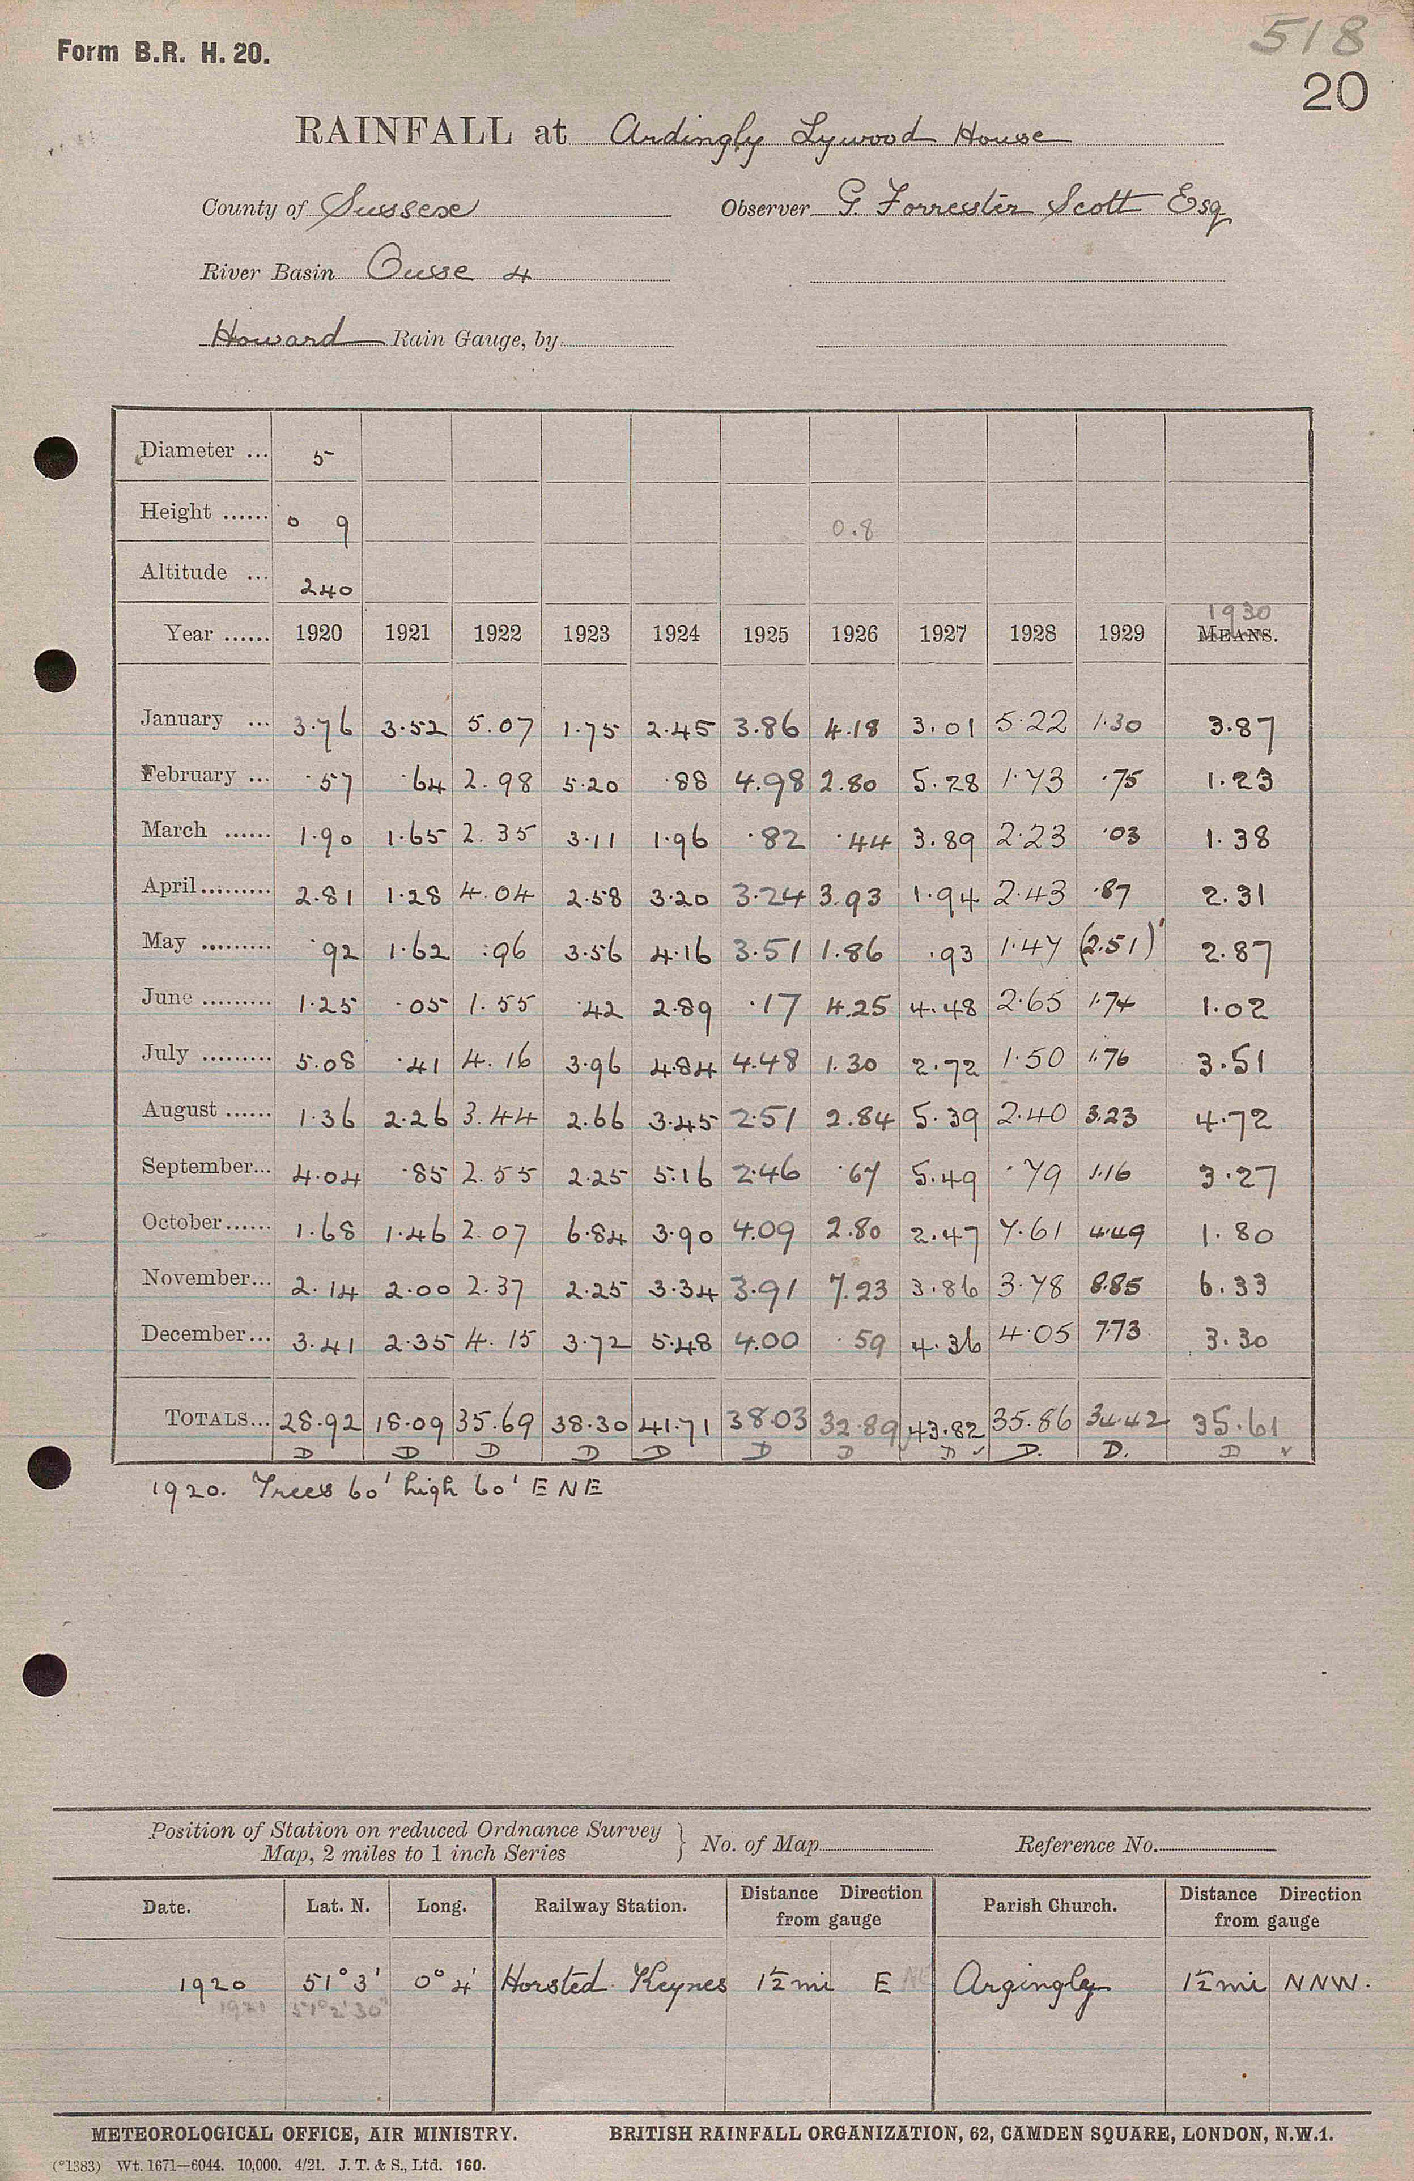 Form B.R. H. 20.
518
20
RAINFALL at Ardingly Lywood House
County of Sussex Observer G. Forrester Scott Esq
River Basin Ouse 4
Howard Rain Gauge, by
Diameter ... 5
Height ...... 0 9 0.8
Altitude ... 240
1930
Year ...... 1920 1921 1922 1923 1924 1925 1926 1927 1928 1929 MEANS.
January ... 3.76 3.52 5.07 1.75 2.45 3.86 4.18 3.01 5.22 1.30 3.87
February ... .57 .64 2.98 5.20 .88 4.98 2.80 5.28 1.73 .75 1.23
March ...... 1.90 1.65 2.35 3.11 1.96 .82 .44 3.89 2.23 .03 1.38
April......... 2.81 1.28 4.04 2.58 3.20 3.24 3.93 1.94 2.43 .87 2.31
May ......... .92 1.62 .96 3.56 4.16 3.51 1.86 .93 1.47 (2.51) 2.87
June ......... 1.25 .05 1.55 .42 2.89 .17 4.25 4.48 2.65 1.74 1.02
July ......... 5.08 .41 4.16 3.96 4.84 4.48 1.30 2.72 1.50 1.76 3.51
August ...... 1.36 2.26 3.44 2.66 3.45 2.51 2.84 5.39 2.40 3.23 4.72
September... 4.04 .85 2.55 2.25 5.16 2.46 .67 5.49 .79 1.16 3.27
October...... 1.68 1.46 2.07 6.84 3.90 4.09 2.80 2.47 7.61 4.49 1.80
November... 2.14 2.00 2.37 2.25 3.34 3.91 7.23 3.86 3.78 8.85 6.33
December... 3.41 2.35 4.15 3.72 5.48 4.00 .59 4.36 4.05 7.73 3.30
TOTALS... 28.92 18.09 35.69 38.30 41.71 38.03 32.89 43.82 35.86 34.42 35.61
D D D D D D D D ✓ D. D. D ✓
1920. Trees 60' high 60' ENE
Position of Station on reduced Ordnance Survey
Map, 2 miles to 1 inch Series } No. of Map Reference No.
Date. Lat. N. Long. Railway Station. Distance Direction from gauge Parish Church. Distance Direction from gauge
1920 51° 3' 0° 4' Horsted Keynes 1½ mi E NE Argingly 1½ mi NNW.
1920 51° 2' 30"
METEOROLOGICAL OFFICE, AIR MINISTRY. BRITISH RAINFALL ORGANIZATION, 62, CAMDEN SQUARE, LONDON, N.W.1.
(*1383) Wt. 1671—6044. 10,000. 4/21. J. T. & S., Ltd. 160.